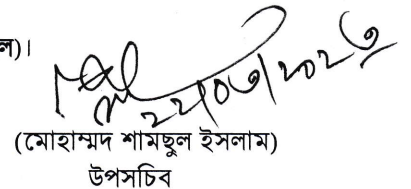 ল)।
২২/০৩/২০২৩
(মোহাম্মদ শামছুল ইসলাম)
উপসচিব